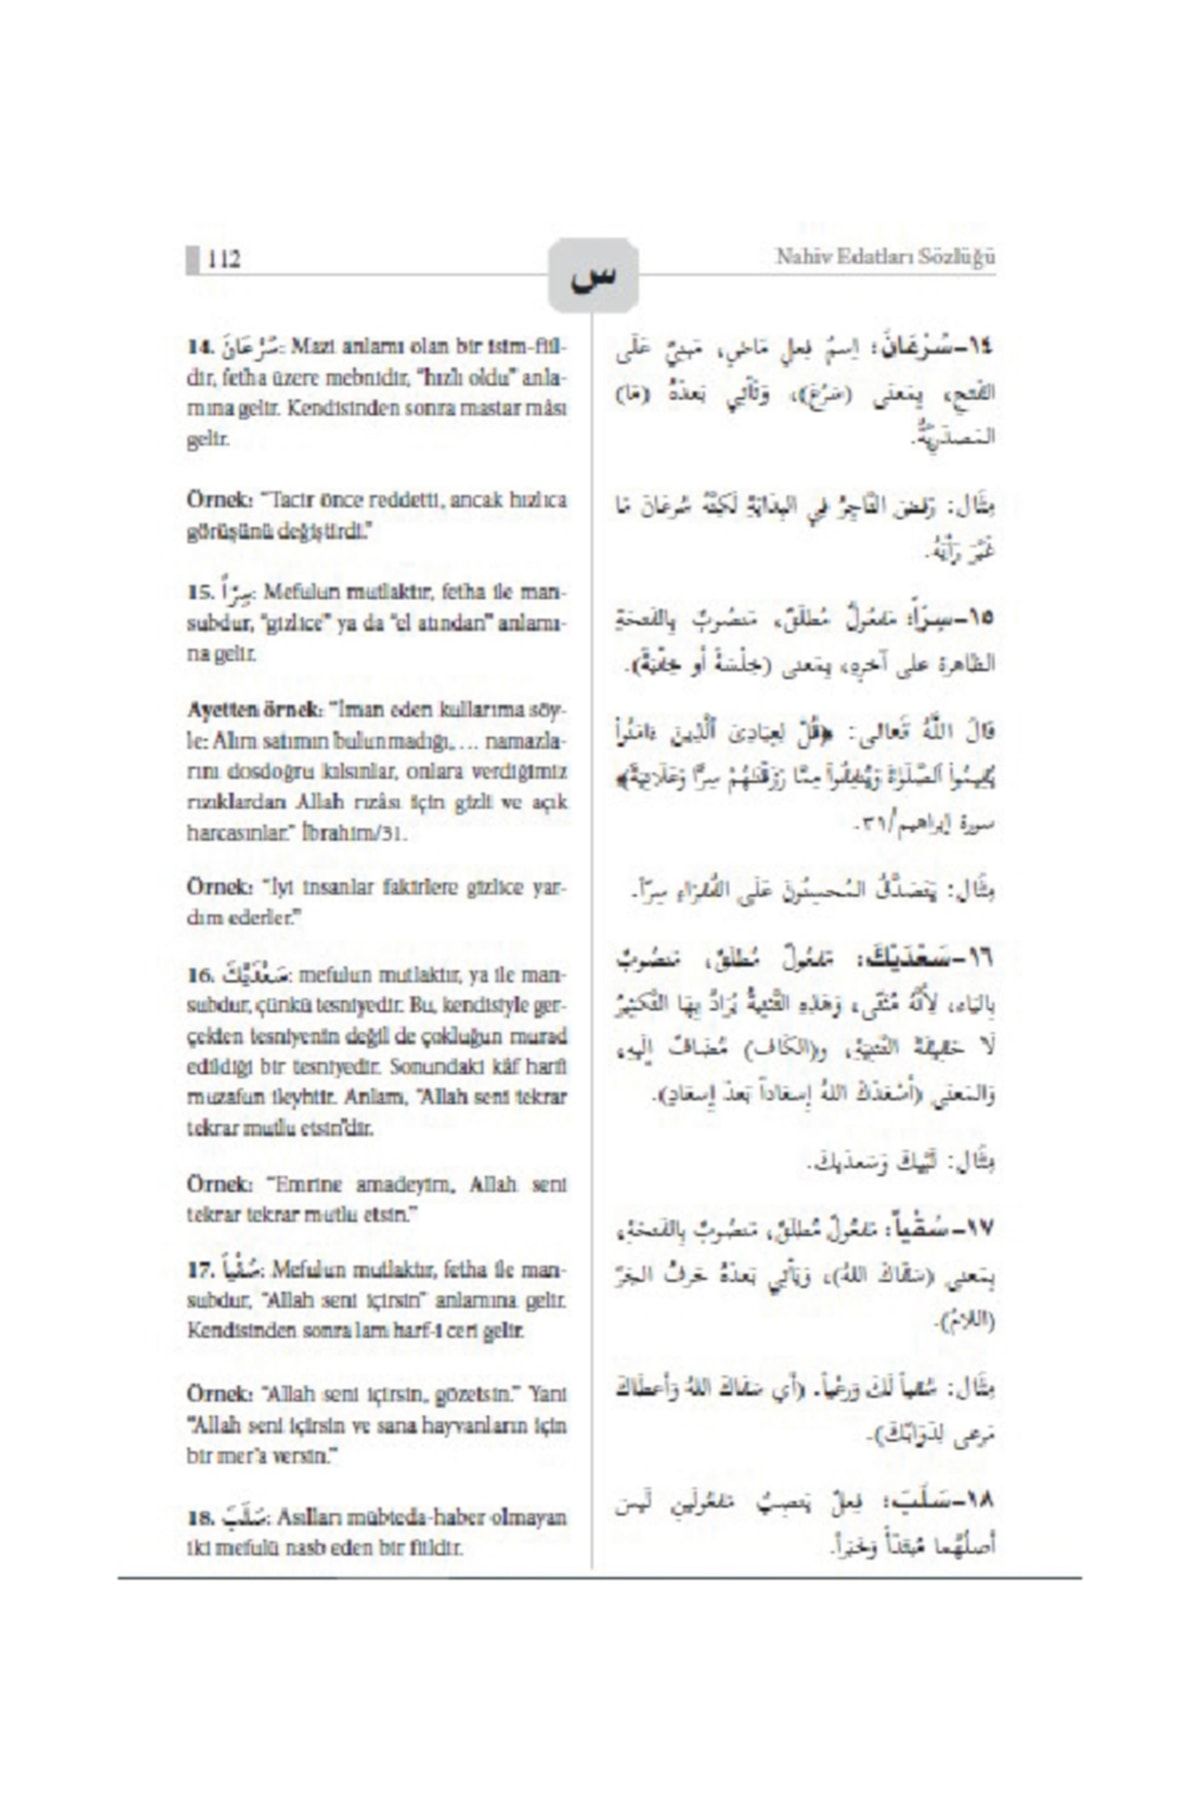 112
س
Nahiv Edatları Sözlüğü
14. سُرْعَانَ: Mazi anlamı olan bir isim-fiil-
dir, fetha üzere mebnidir, "hızlı oldu" anla-
mına gelir. Kendisinden sonra mastar mâsı
gelir.
Örnek: "Tacir önce reddetti, ancak hızlıca
görüşünü değiştirdi."
15. سِرّاً: Mefulun mutlaktır, fetha ile man-
subdur, "gizlice" ya da "el altından" anlamı-
na gelir.
Ayetten örnek: "İman eden kullarıma söy-
le: Alım satımın bulunmadığı, ... namazla-
rını dosdoğru kılsınlar, onlara verdiğimiz
rızıklardan Allah rızâsı için gizli ve açık
harcasınlar." İbrahim/31.
Örnek: "İyi insanlar fakirlere gizlice yar-
dım ederler."
16. سَعْدَيْكَ: mefulun mutlaktır, ya ile man-
subdur, çünkü tesniyedir. Bu, kendisiyle ger-
çekten tesniyenin değil de çokluğun murad
edildiği bir tesniyedir. Sonundaki kâf harfi
muzafun ileyhtir. Anlam, "Allah seni tekrar
tekrar mutlu etsin"dir.
Örnek: "Emrine amadeyim, Allah seni
tekrar tekrar mutlu etsin."
17. سُقْياً: Mefulun mutlaktır, fetha ile man-
subdur, "Allah seni içirsin" anlamına gelir.
Kendisinden sonra lam harf-i ceri gelir.
Örnek: "Allah seni içirsin, gözetsin." Yani
"Allah seni içirsin ve sana hayvanların için
bir mer'a versin."
18. سَلَبَ: Asılları mübteda-haber olmayan
iki mefulü nasb eden bir fiildir.
١٤-سُرْعَانَ: اِسمُ فِعلٍ مَاضٍ، مَبنِيٌّ عَلَى
الفَتحِ، بِمَعنَى (سَرُعَ)، وَتَأتِي بَعدَهُ (مَا)
المَصدَرِيَّةُ.
مِثَال: رَفَضَ التَّاجِرُ فِي البِدَايَةِ لَكِنَّهُ سُرعَانَ مَا
غَيَّرَ رَأيَهُ.
١٥-سِرّاً: مَفعُولٌ مُطلَقٌ، مَنصُوبٌ بِالفَتحَةِ
الظاهرة على آخرِهِ، بِمَعنى (خِلْسَةً أو خِفْيَةً).
قالَ اللَّهُ تَعالى: ﴿قُلْ لِعِبَادِيَ ٱلَّذِينَ ءَامَنُواْ
يُقِيمُواْ ٱلصَّلَوٰةَ وَيُنفِقُواْ مِمَّا رَزَقْنَٰهُمْ سِرًّا وَعَلَانِيَةً﴾
سورة إبراهيم/٣١.
مِثَال: يَتَصَدَّقُ المُحسِنُونَ عَلَى الفُقَرَاءِ سِرّاً.
١٦-سَعْدَيْكَ: مَفعُولٌ مُطلَقٌ، مَنصُوبٌ
بِاليَاءِ، لِأَنَّهُ مُثَنَّى، وَهَذِهِ التَّثنِيَةُ يُرَادُ بِهَا التَّكثِيرُ
لَا حَقِيقَةُ التَّثنِيَةِ، و(الكَاف) مُضَافٌ إِلَيهِ،
وَالمَعنَى (أَسْعَدَكَ اللهُ إِسعَاداً بَعدَ إِسعَادٍ).
مِثَال: لَبَّيكَ وَسَعدَيكَ.
١٧-سُقْياً: مَفعُولٌ مُطلَقٌ، مَنصُوبٌ بِالفَتحَةِ،
بِمَعنى (سَقَاكَ اللهُ)، وَيَأتِي بَعدَهُ حَرفُ الجَرِّ
(اللامُ).
مِثَال: سُقياً لَكَ وَرَعْياً. (أي سَقَاكَ اللهُ وَأَعطَاكَ
مَرعى لِدَوَابِّكَ).
١٨-سَلَبَ: فِعلٌ يَنصِبُ مَفعُولَينِ لَيسَ
أَصلُهُما مُبتَدَأً وَخَبَراً.